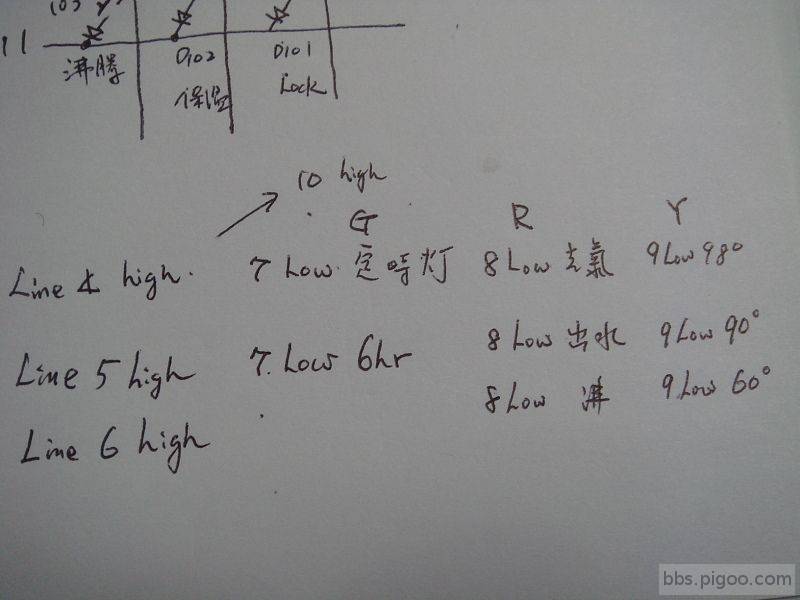 103
11
沸腾 D102 D101
保温 Lock
10 high
G R Y
Line 4 high. 7 Low. 定時灯 8 Low 去氯 9 Low 98°
Line 5 high 7. Low 6hr 8 Low 出水 9 Low 90°
8 Low 沸 9 Low 60°
Line 6 high
bbs.pigoo.com